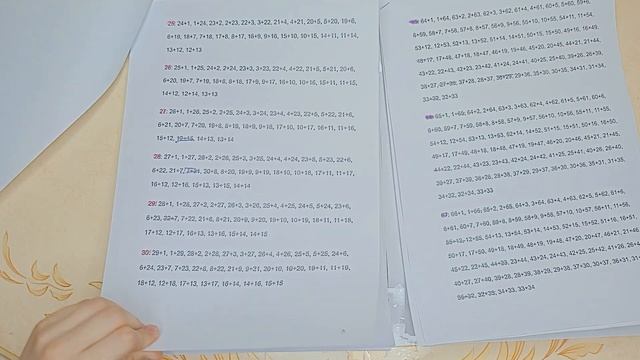 25: 24+1, 1+24, 23+2, 2+23, 22+3, 3+22, 21+4, 4+21, 20+5, 5+20, 19+6,
6+19, 18+7, 7+18, 17+8, 8+17, 16+9, 9+16, 15+10, 10+15, 14+11, 11+14,
13+12, 12+13
26: 25+1, 1+25, 24+2, 2+24, 23+3, 3+23, 22+4, 4+22, 21+5, 5+21, 20+6,
6+20, 19+7, 7+19, 18+8, 8+18, 17+9, 9+17, 16+10, 10+16, 15+11, 11+15,
14+12, 12+14, 13+13
27: 26+1, 1+26, 25+2, 2+25, 24+3, 3+24, 23+4, 4+23, 22+5, 5+22, 21+6,
6+21, 20+7, 7+20, 19+8, 8+19, 18+9, 9+18, 17+10, 10+17, 16+11, 11+16,
15+12, 14+13, 13+14
28: 27+1, 1+27, 26+2, 2+26, 25+3, 3+25, 24+4, 4+24, 23+5, 5+23, 22+6,
6+22, 21+7, 20+8, 8+20, 19+9, 9+19, 18+10, 10+18, 17+11, 11+17,
16+12, 12+16, 15+13, 13+15, 14+14
29: 28+1, 1+28, 27+2, 2+27, 26+3, 3+26, 25+4, 4+25, 24+5, 5+24, 23+6,
6+23, 22+7, 7+22, 21+8, 8+21, 20+9, 9+20, 19+10, 10+19, 18+11, 11+18,
17+12, 12+17, 16+13, 13+16, 15+14, 14+15
30: 29+1, 1+29, 28+2, 2+28, 27+3, 3+27, 26+4, 4+26, 25+5, 5+25, 24+6,
6+24, 23+7, 7+23, 22+8, 8+22, 21+9, 9+21, 20+10, 10+20, 19+11, 11+19,
18+12, 12+18, 17+13, 13+17, 16+14, 14+16, 15+15
64+1, 1+64, 63+2, 2+63, 62+3, 3+62, 61+4, 4+61, 60+5, 5+60, 59+6,
6+59, 58+7, 7+58, 57+8, 8+57, 56+9, 9+56, 55+10, 10+55, 54+11, 11+54,
53+12, 12+53, 52+13, 13+52, 51+14, 14+51, 50+15, 15+50, 49+16, 16+49,
48+17, 17+48, 47+18, 18+47, 46+19, 19+46, 45+20, 20+45, 44+21, 21+44,
43+22, 22+43, 42+23, 23+42, 41+24, 24+41, 40+25, 25+40, 39+26, 26+39,
38+27, 27+38, 37+28, 28+37, 36+29, 29+36, 35+30, 30+35, 34+31, 31+34,
33+32, 32+33
65+1, 1+65, 64+2, 2+64, 63+3, 3+63, 62+4, 4+62, 61+5, 5+61, 60+6,
6+60, 59+7, 7+59, 58+8, 8+58, 57+9, 9+57, 56+10, 10+56, 55+11, 11+55,
54+12, 12+54, 53+13, 13+53, 52+14, 14+52, 51+15, 15+51, 50+16, 16+50,
49+17, 17+49, 48+18, 18+48, 47+19, 19+47, 46+20, 20+46, 45+21, 21+45,
44+22, 22+44, 43+23, 23+43, 42+24, 24+42, 41+25, 25+41, 40+26, 26+40,
39+27, 27+39, 38+28, 28+38, 37+29, 29+37, 36+30, 30+36, 35+31, 31+35,
34+32, 32+34, 33+33
67: 66+1, 1+66, 65+2, 2+65, 64+3, 3+64, 63+4, 4+63, 62+5, 5+62, 61+6,
6+61, 60+7, 7+60, 59+8, 8+59, 58+9, 9+58, 57+10, 10+57, 56+11, 11+56,
55+12, 12+55, 54+13, 13+54, 53+14, 14+53, 52+15, 15+52, 51+16, 16+51,
50+17, 17+50, 49+18, 18+49, 48+19, 19+48, 47+20, 20+47, 46+21, 21+46,
45+22, 22+45, 44+23, 23+44, 43+24, 24+43, 42+25, 25+42, 41+26, 26+41,
40+27, 27+40, 39+28, 28+39, 38+29, 29+38, 37+30, 30+37, 36+31, 31+36,
35+32, 32+35, 34+33, 33+34